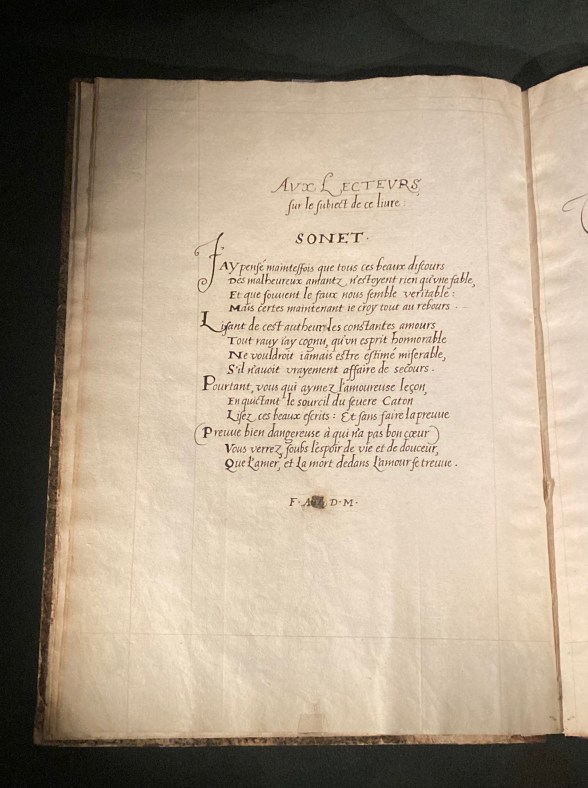 AVX LECTEVRS,
sur le subiect de ce liure :
SONET.
J'AY pensé maintesfois que tous ces beaux discours
Des malheureux amantz, n'estoyent rien qu'vne fable,
Et que souuent le faux nous semble veritable :
Mais certes maintenant ie croy tout au rebours.
Lisant de cest autheur les constantes amours
Tout rauy iay cognu, qu'vn esprit honnorable
Ne vouldroit iamais estre estimé miserable,
S'il n'auoit vrayement affaire de secours.
Pourtant, vous qui aymez l'amoureuse leçon,
En quictant le sourcil du seuere Caton
Lisez ces beaux escrits : Et sans faire la preuue
(Preuue bien dangereuse à qui n'a pas bon cœur)
Vous verrez, soubs l'espoir de vie et de douceur,
Que l'amer, et la mort dedans l'amour se treuue.
F. D. M.